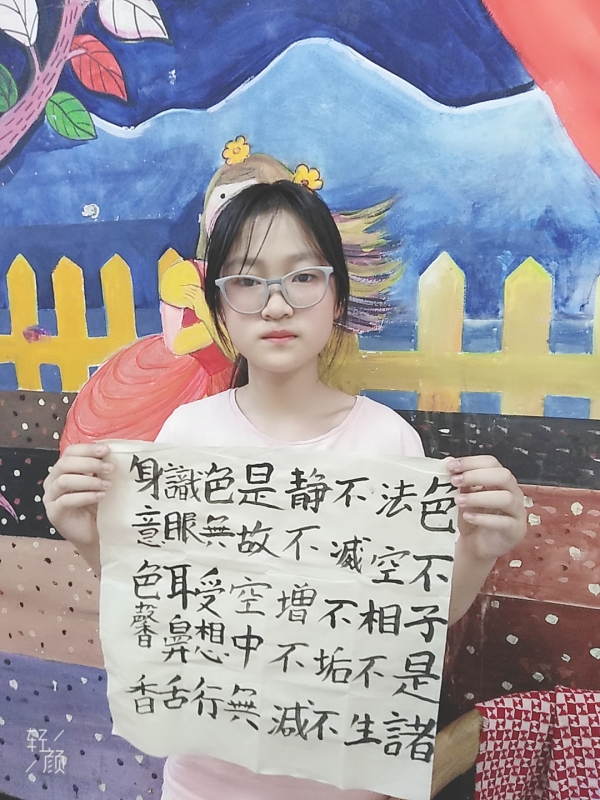 色不子是諸
法空相不生
不滅不垢不
静不增不減
是故空中無
色無受想行
識眼耳鼻舌
身意色馨香
轻颜